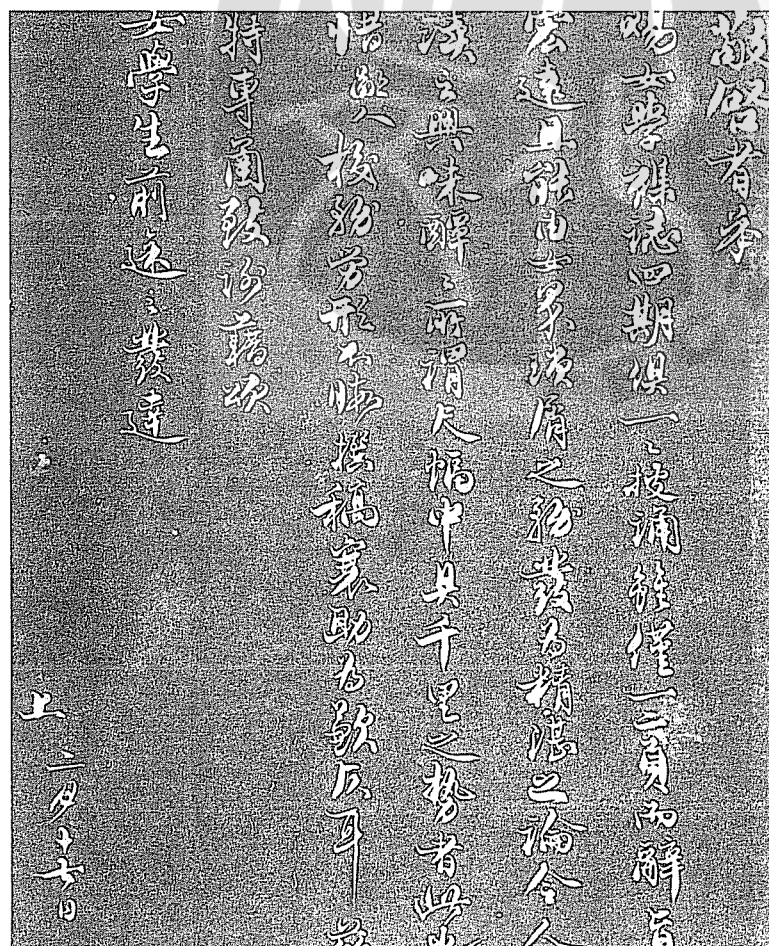 敬啓者承
賜女學雜誌四期俱一一披誦雖僅一頁而辭旨
宏遠且能由女界瑣屑之務發為精湛之論令人
讀之興味醰醰所謂尺幅中具千里之勢者此也
惜敝人校務勞形不暇撰稿襄助為歉仄耳茲
特專函致謝藉頌
女學生前途之發達
上 二月十七日